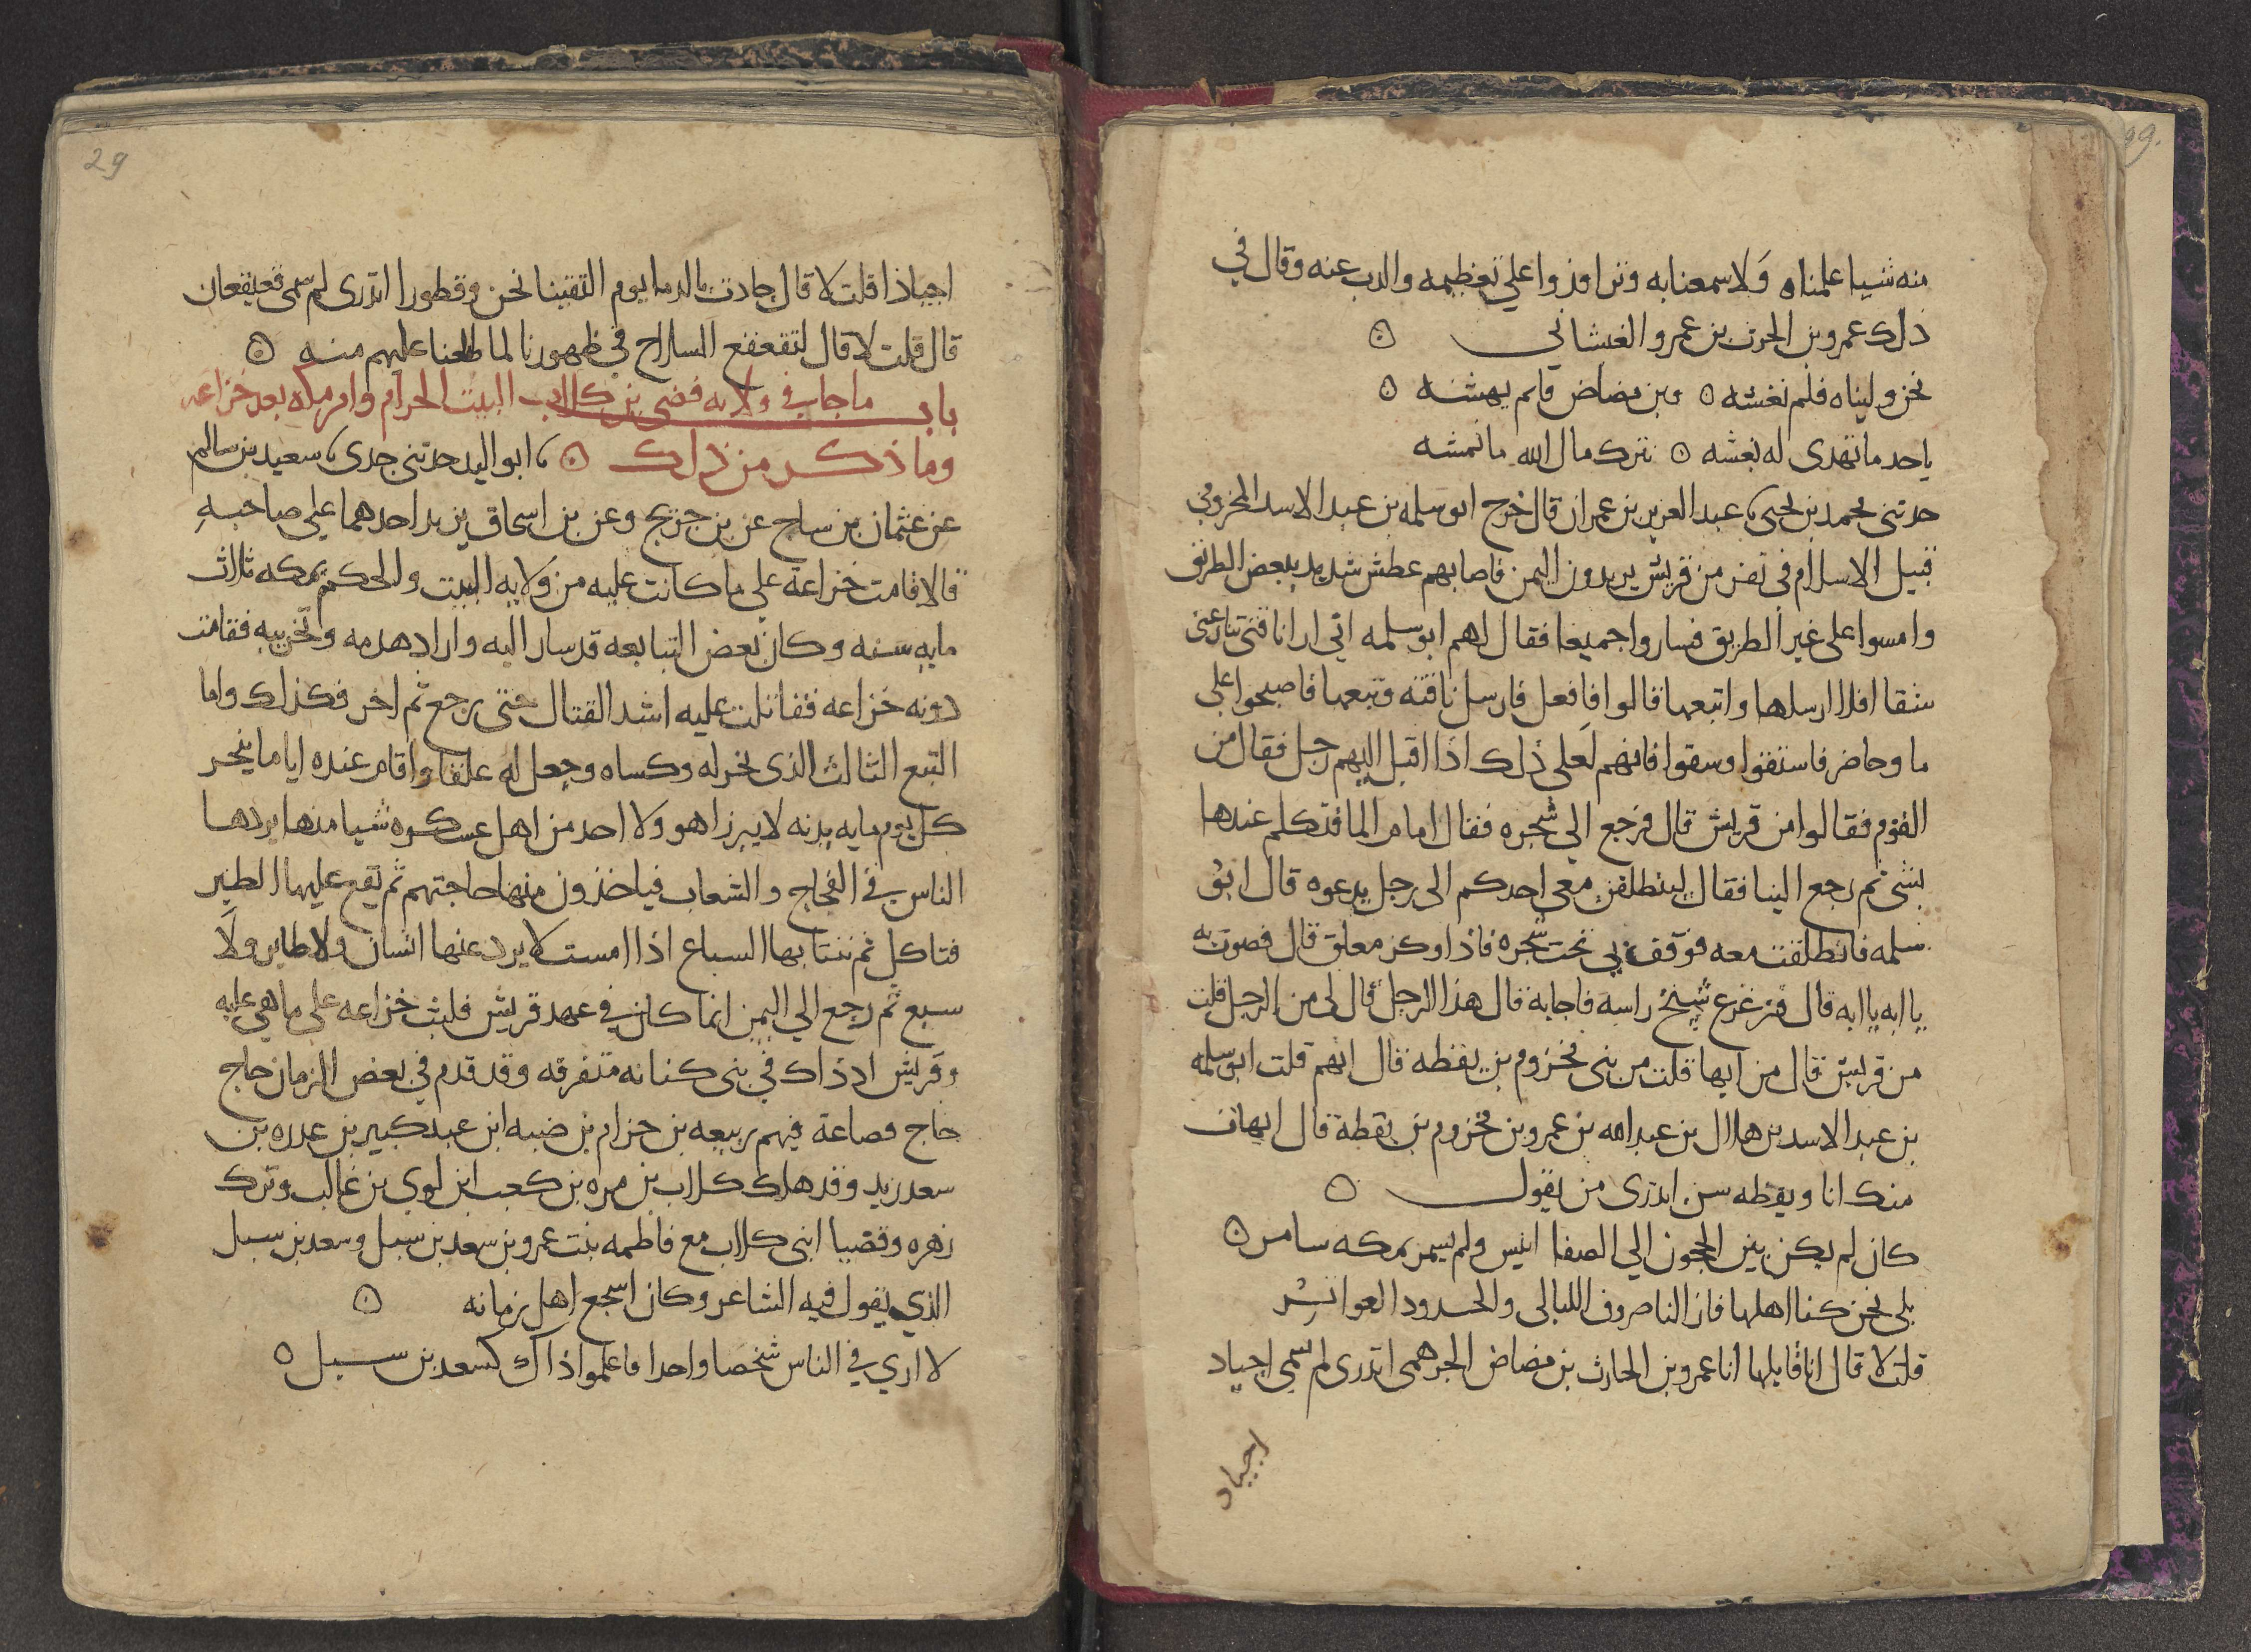 99.
منه شيا علمناه وَلا سمعنا به وتراوذوا علي تعظيمه والدب عنه وقال في
ذلك عمرو بن الحرث بن عمرو الغشاني ۞
نحن وليناه فلم نغشه ۞ وبن مضاض قايم يهشه ۞
ياحد ما تهدى له نغشه ۞ نترك مال الله ما نمشه
حدثنى محمد بن يحيى ، عبد العزيز بن عمران قال خرج ابو سلمه بن عبد الاسد المخزومي
قبيل الاسلام فى نفر من قريش يريدون اليمن فاصابهم عطش شديد ببعض الطريق
وامسوا على غير الطريق فساروا جميعا فقال لهم ابو سلمه اني ارا ناقتي تنازعني
شقا افلا ارسلها واتبعها قالوا فافعل فارسل ناقته وتبعها فاصبحوا علي
ما وحاضر فاستقوا وسقوا فانهم لَعلى ذلك اذا اقبل اليهم رجل فقال من
القوم فقالوا من قريش قال فرجع الي شجره فقال امام الما فتكلم عندها
بشى ثم رجع الينا فقال لينطلقن معى احدكم الى رجل يدعوه قال ابو
سلمه فانطلقت معه فوقف بي تحت شجره فاذا وكر معلق قال فصوت به
يا ابه يا ابه قال فزعزع شيخ راسه فاجابه قال هذا الرجل قال لى من الرجل قلت
من قريش قال من ايها قلت من بنى مخزوم بن يقظه قال ايهم قلت ابو سلمه
بن عبد الاسد بن هلال بن عبد الله بن عمرو بن مخزوم بن يقظة قال ايهات
منك انا ويقظه سن اتدرى من يقول ۞
كان لم يكن بين الحجون الي الصفا انيس ولم يسمر بمكه سامر ۞
بلى نحن كنا اهلها فازالنا صروف الليالى والجدود العواثر
قلت لا قال انا قايلها انا عمرو بن الحارث بن مضاض الجرهمى اتدرى لم سمي اجياد
اجياد
29
اجياذا قلت لا قال جادت بالدما يوم التقينا نحن وقطورا اتدرى لم سمى قعيقعان
قال قلت لا قال لتقعقع السلاح في ظهورنا لما طلعنا عليهم منه ۞
باب ما جا في ولايه قصى بن كلاب البيت الحرام وامر مكه بعد خزاعه
وما ذكر من ذلك ۞ ، ابو اليد حدثنى جدى ، سعيد بن سالم
عن عثمان بن ساج عن بن جريج وعن بن اسحاق يزيد احدهما علي صاحبهِ
قالا قامت خزاعة علي ما كانت عليه من وَلايه البيت والحكم بمكه ثلاث
مايه سنه وكان بعض التبابعه قد سار اليه واراد هدمه وتخريبه فقامت
دونه خزاعه فقاتلت عليه اشد القتال حتى رجع ثم اخر فكذلك واما
التبع الثالث الذى نحر له وكساه وجعل له علقا واقام عنده اياما ينحر
كل يوم مايه بدنه لا يبرزا هو ولا احد من اهل عسكره شيا منها يردها
الناس في الفجاج والشعاب فياخذون منها حاجتهم ثم تقع عليها الطير
فتاكل ثم تنتابها السباع اذا امست لا يرد عنها انسان ولا طاير ولا
سبع ثم رجع الي اليمن انما كان في عهد قريش فلبث خزاعه على ما هي عليه
وقريش اذ ذاك في بنى كنانه متفرقه وقد قدم في بعض الزمان حاج
حاج قصاعة فيهم ربيعه بن حزام بن ضبه ابن عبد كبير بن عدره بن
سعد زيد وقد هلك كلاب بن مره بن كعب ابن لوي بن غالب وترك
زهره وقصيا ابنى كلاب مع فاطمه بنت عمرو بن سعد بن سيل وسعد بن سيل
الذي يقول فيه الشاعر وكان اسجع اهل زمانه ۞
لا اري في الناس شخصا واحدا فاعلموا ذاك كسعد بن سيل ۞